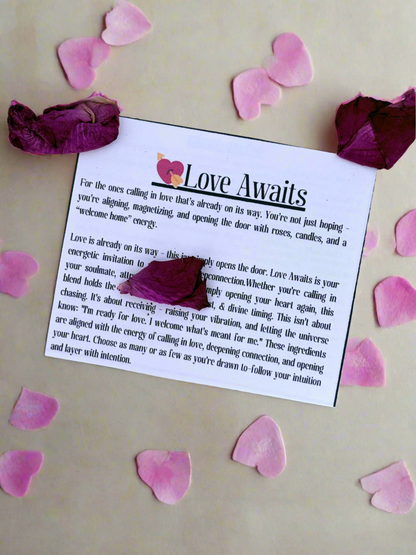 Love Awaits
For the ones calling in love that's already on its way. You're not just hoping -
you're aligning, magnetizing, and opening the door with roses, candles, and a
"welcome home" energy.
Love is already on its way - this opens the door. Love Awaits is your
energetic invitation to connection.Whether you're calling in
your soulmate, opening your heart again, this
blend holds the & divine timing. This isn't about
chasing. It's about receiving - raising your vibration, and letting the universe
know: "I'm ready for love. I welcome what's meant for me." These ingredients
are aligned with the energy of calling in love, deepening connection, and opening
your heart. Choose as many or as few as you're drawn to-follow your intuition
and layer with intention.